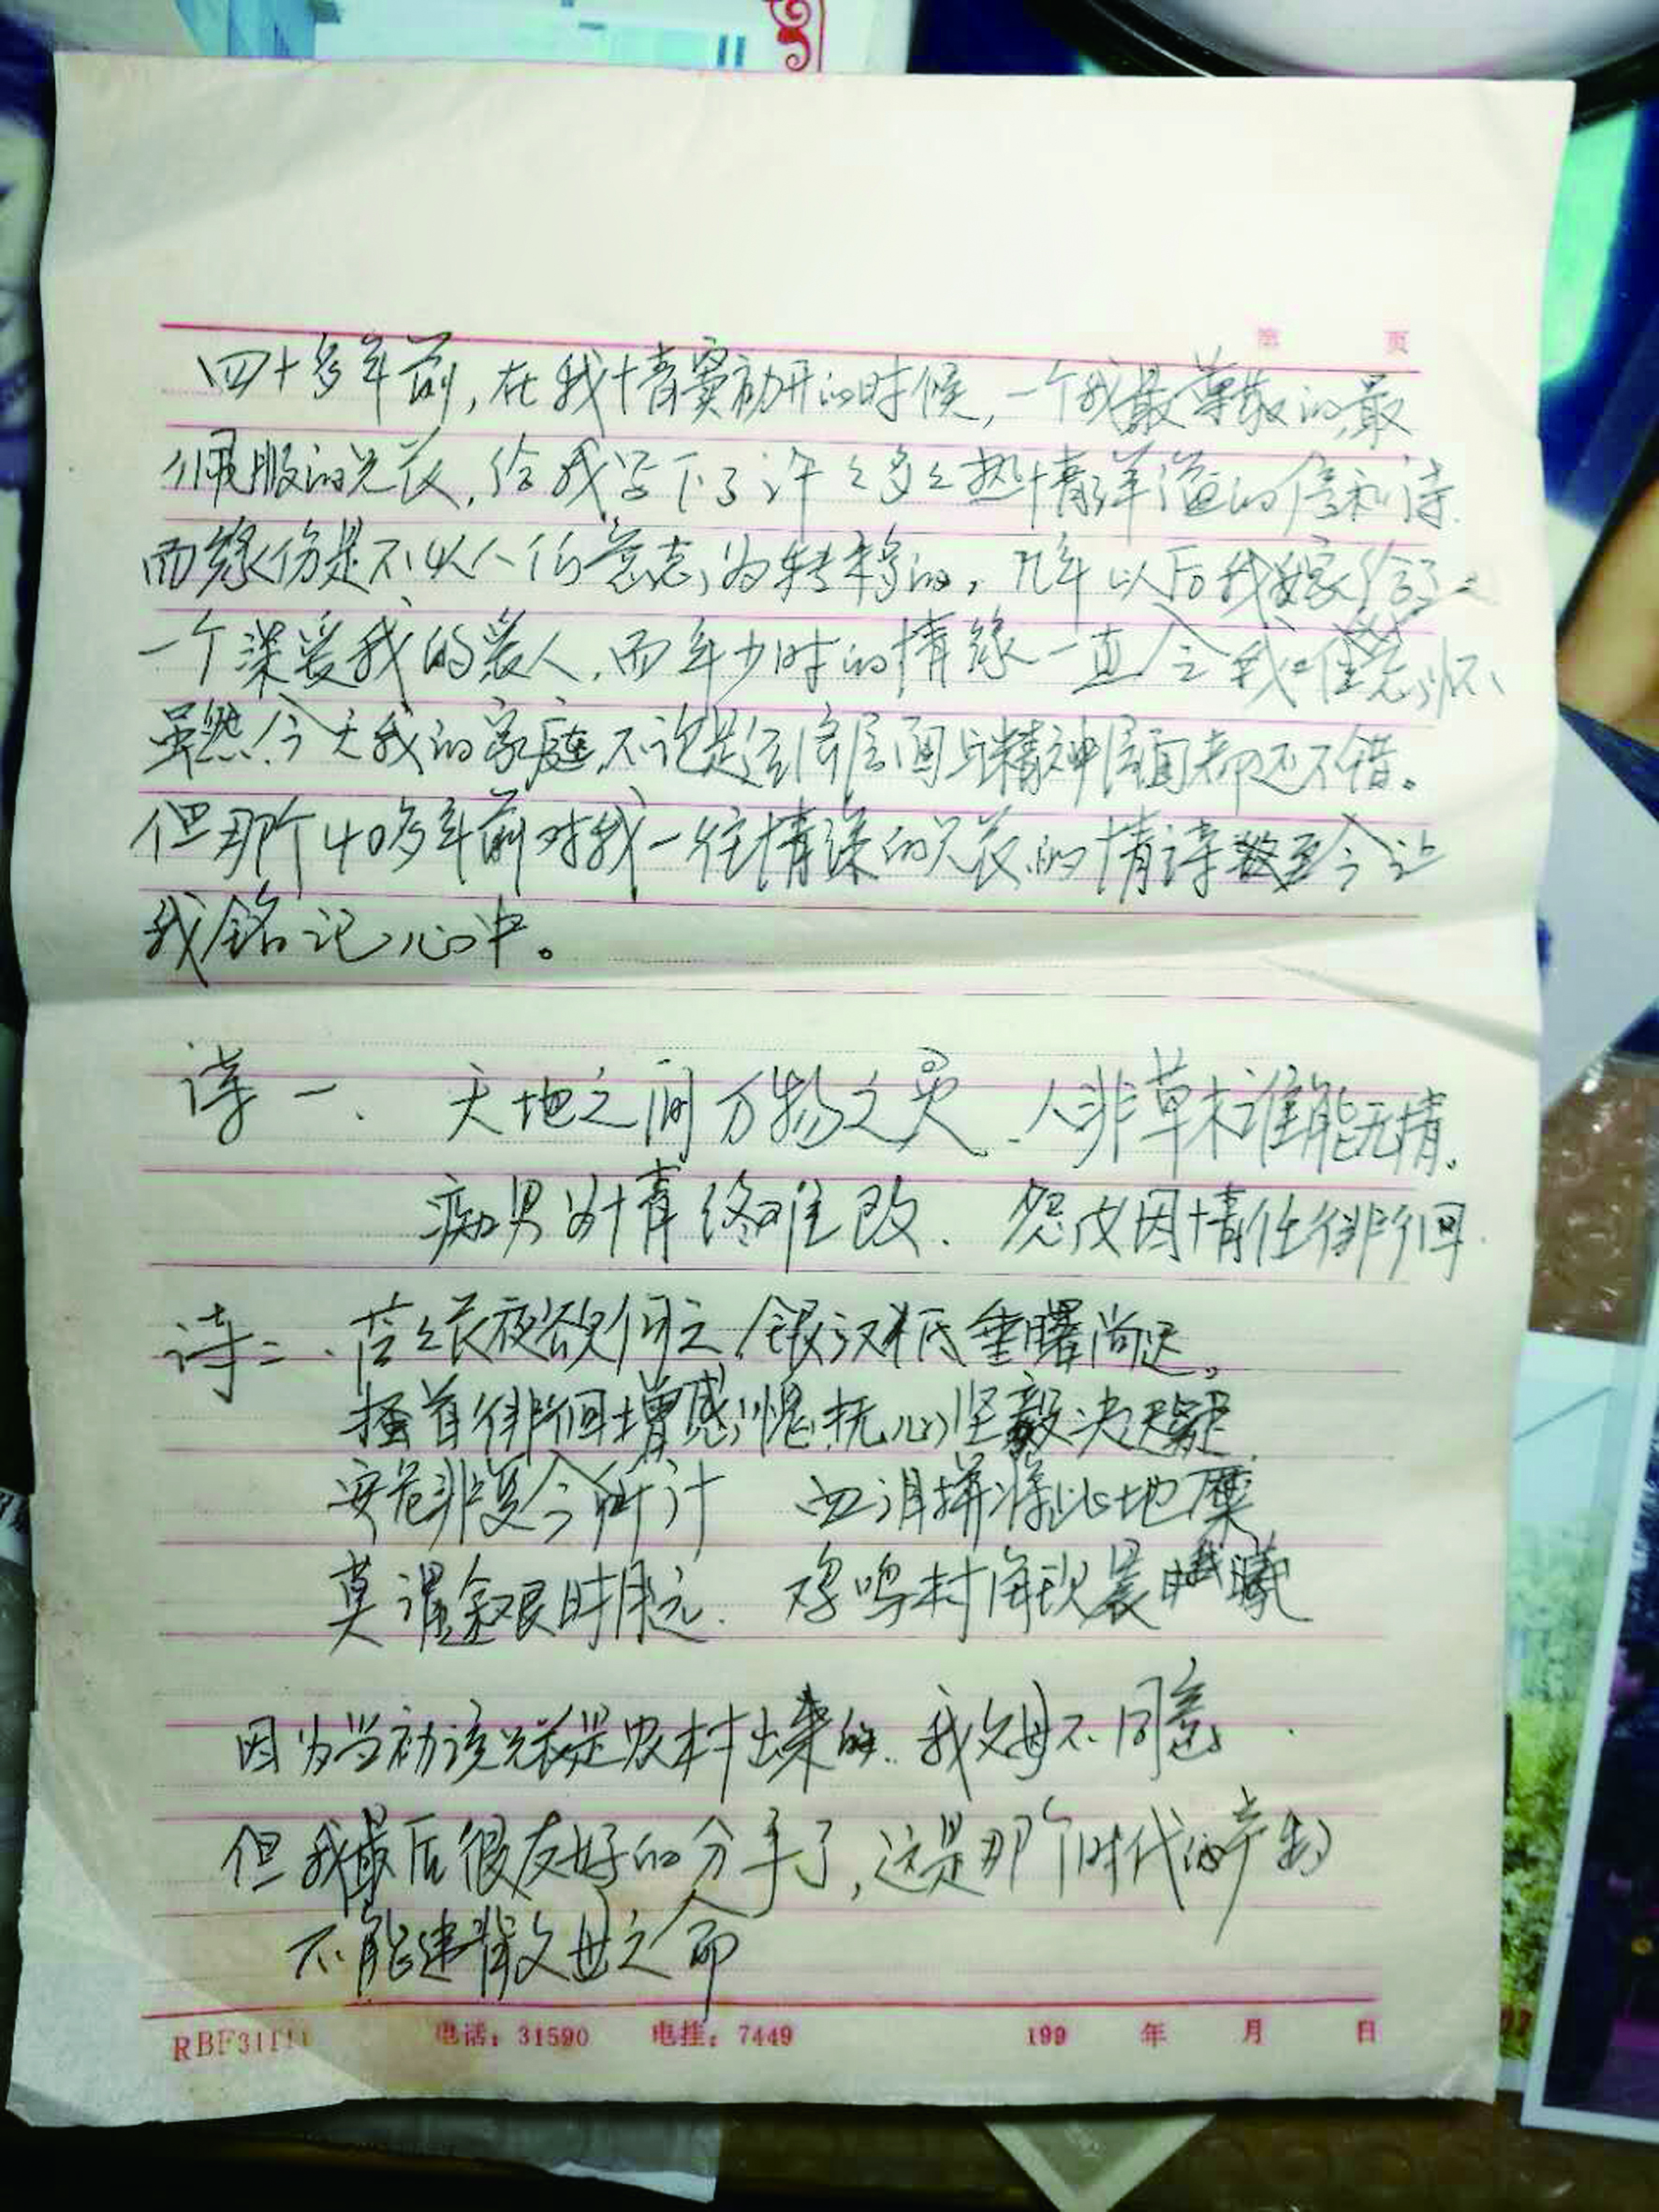 第 页
四十多年前，在我情窦初开的时候，一个我最尊敬的，最
佩服的兄长，给我写下了许许多多热情洋溢的信和诗.
而缘份是不以人的意志为转移的，几年以后我嫁给了
一个深爱我的爱人，而年少时的情缘一直令我怀
虽然今天我的家庭，不论是经济层面与精神层面都还不错。
但那个40多年前对我一往情深的兄长的情诗至今让
我铭记心中。
诗一、 天地之间万物之灵、人非草木谁能无情。
痴男为情终难改. 怨女因情任徘徊.
诗二、苦苦长夜欲何之，银汉低垂曙尚迟。
搔首徘徊增感愧，抚心坚毅决疑.
安危非复今所计 血泪拼将此地糜
莫谓余艰时月远. 鸡鸣村角现晨曦
因为当初该兄长是农村出来的.我父母不同意.
但我最后很友好的分手了，这是那个时代的产物
不能违背父母之命
RBF31111 电话：31590 电挂：7449 199 年 月 日